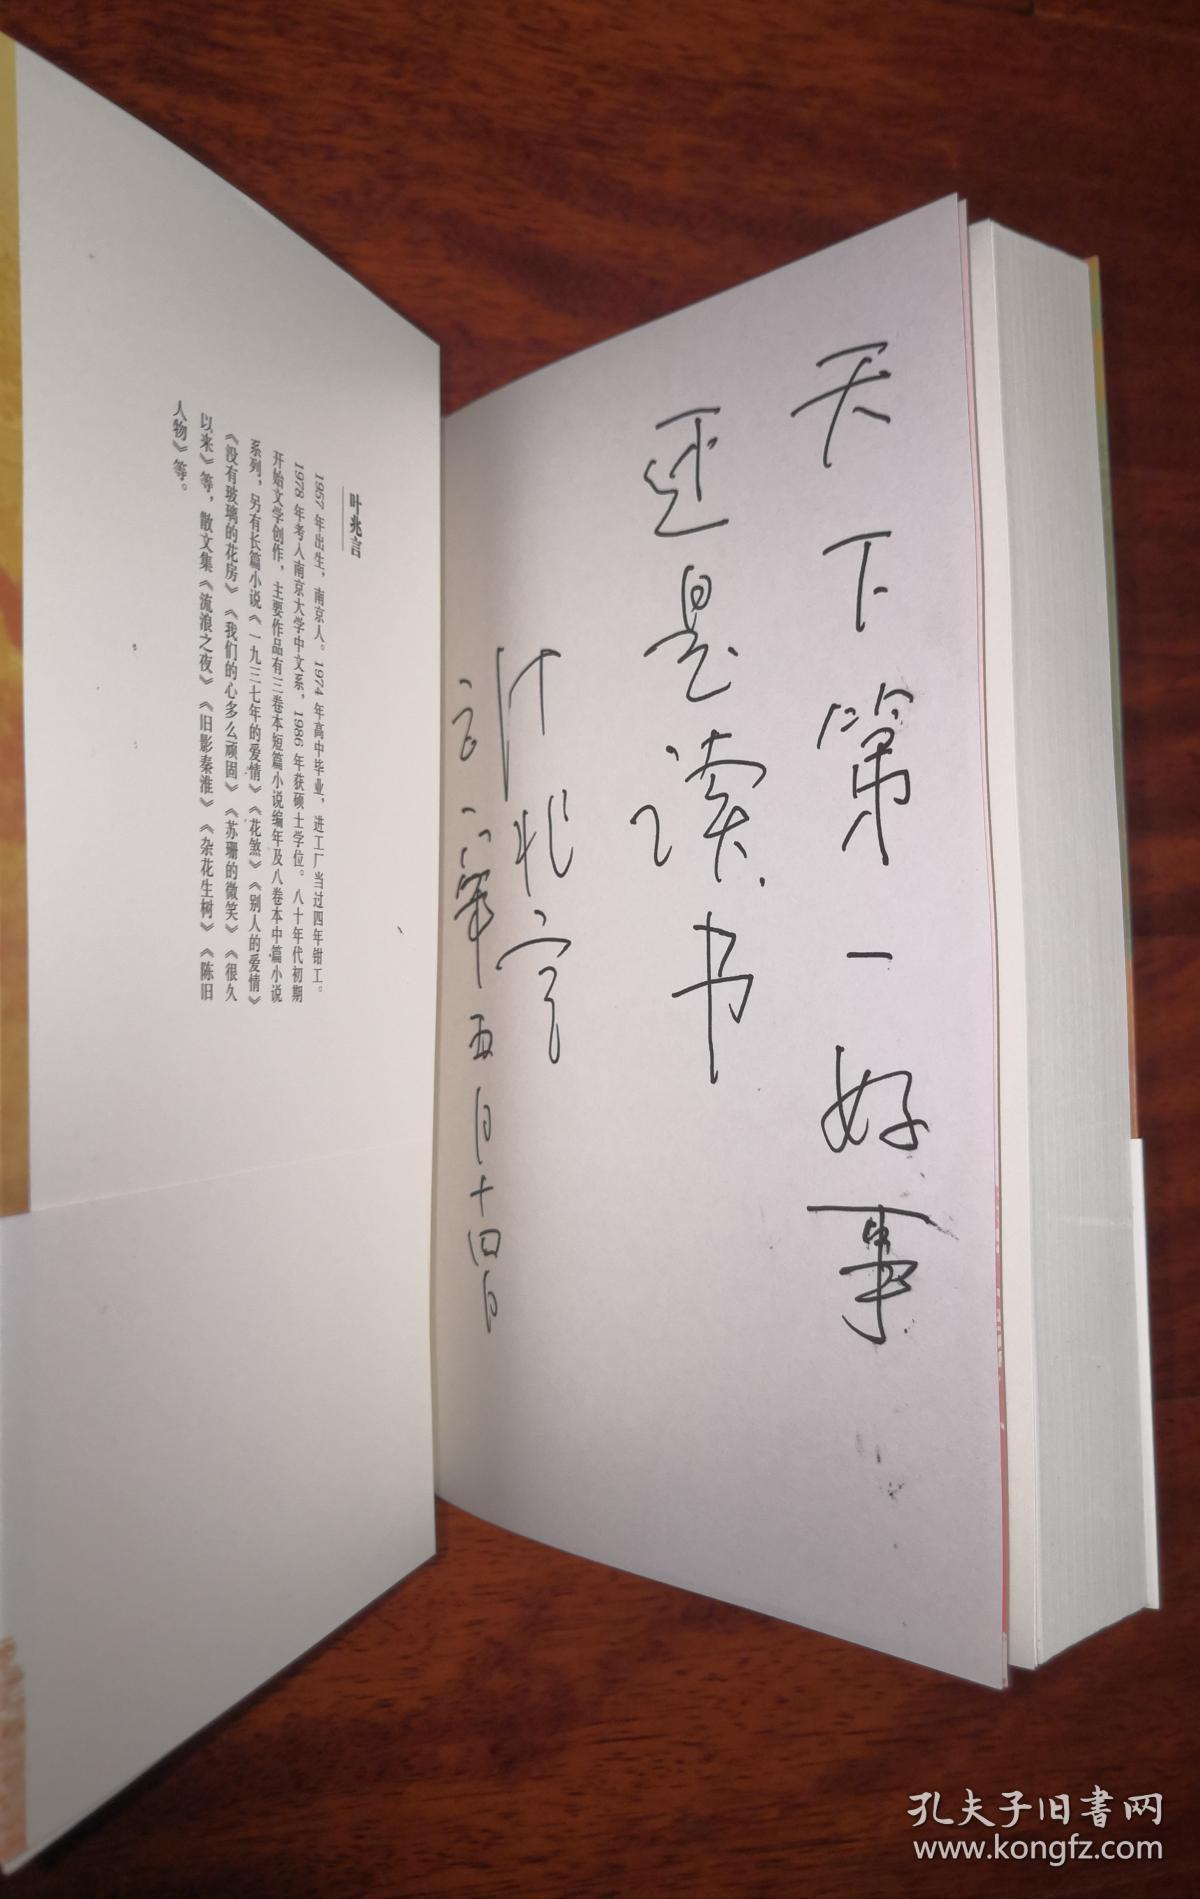 叶兆言
1957 年出生，南京人。1974 年高中毕业，进工厂当过四年钳工。
1978 年考入南京大学中文系，1986 年获硕士学位。八十年代初期
开始文学创作，主要作品有三卷本短篇小说编年及八卷本中篇小说
系列，另有长篇小说《一九三七年的爱情》《花煞》《别人的爱情》
《没有玻璃的花房》《我们的心多么顽固》《苏珊的微笑》《很久
以来》等，散文集《流浪之夜》《旧影秦淮》《杂花生树》《陈旧
人物》等。
天下第一好事
还是读书
叶兆言
年五月十四日
孔夫子旧書网
www.kongfz.com